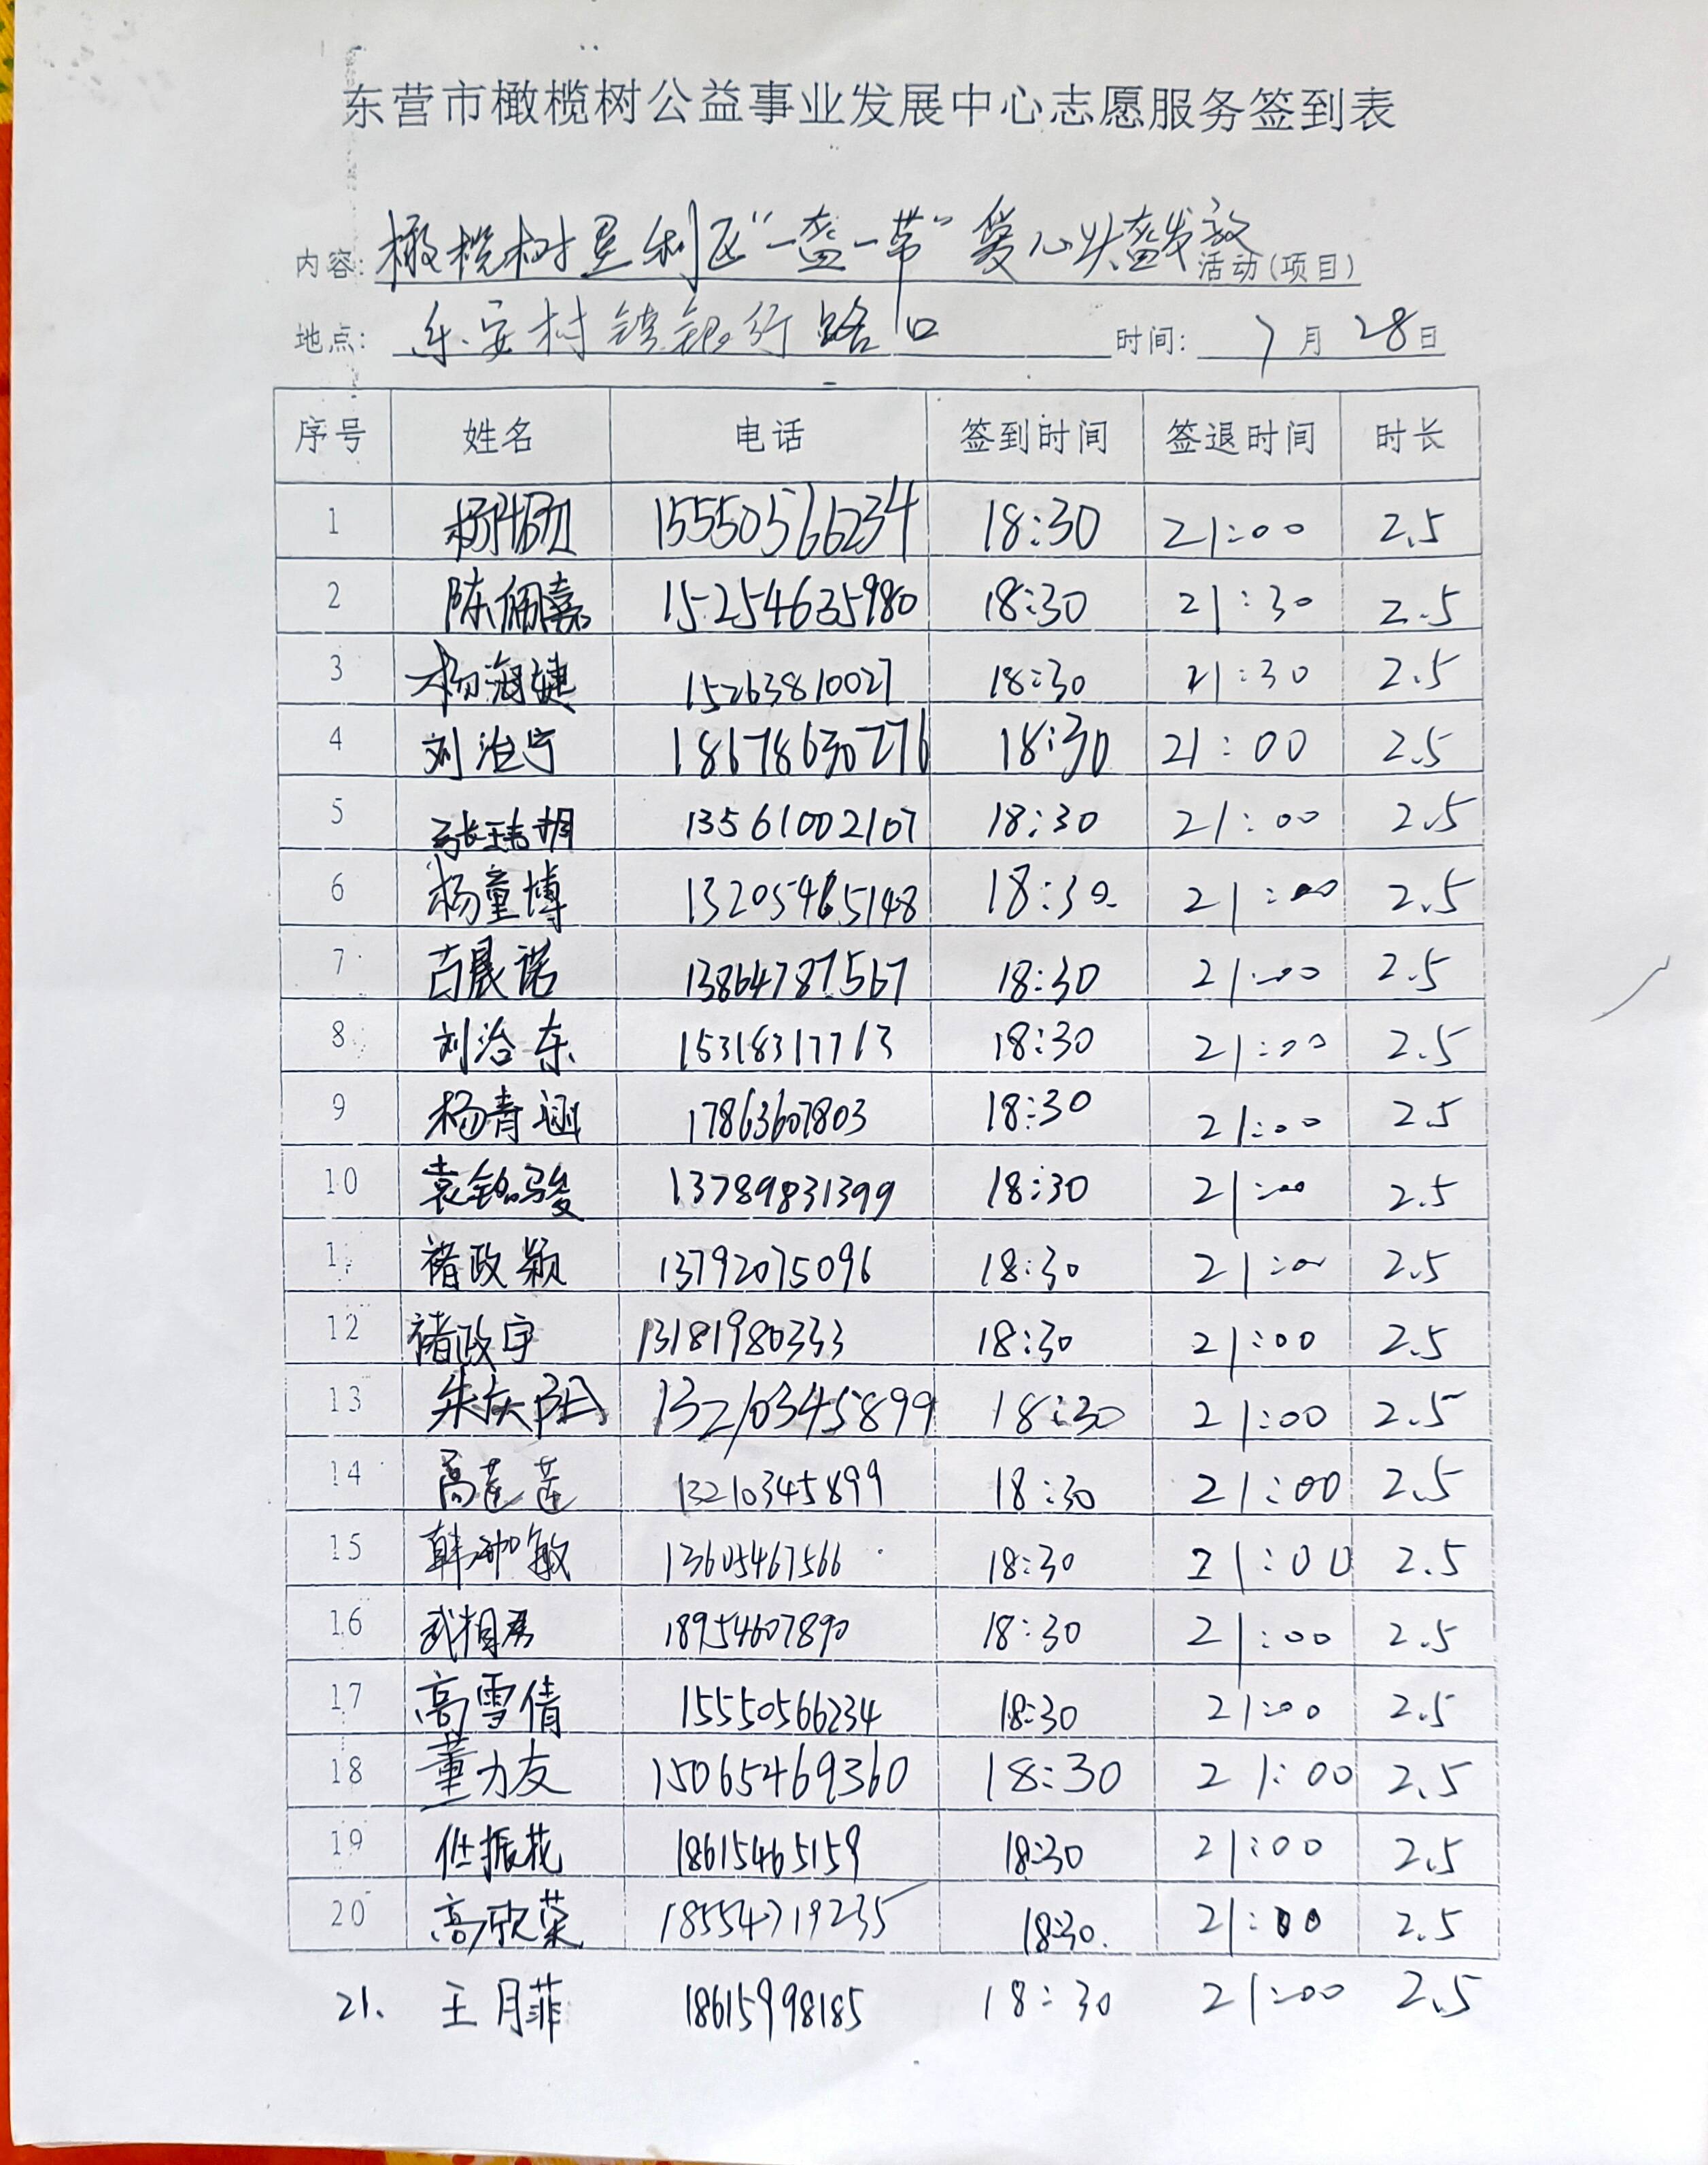 东营市橄榄树公益事业发展中心志愿服务签到表
内容: 橄榄树垦利区“一盔一带”爱心头盔发放 活动(项目)
地点: 乐安村镇银行路口 时间: 7月28日
序号 姓名 电话 签到时间 签退时间 时长
1 15550566234 18:30 21:00 2.5
2 陈佩嘉 15254635980 18:30 21:30 2.5
3 杨海婕 15263810027 18:30 21:30 2.5
4 刘治宁 18678630276 18:30 21:00 2.5
5 张靖玥 13561002107 18:30 21:00 2.5
6 杨童博 13205465148 18:30 21:00 2.5
7 苗晟诺 13864787567 18:30 21:00 2.5
8 刘治东 15318317713 18:30 21:00 2.5
9 杨青涵 17863607803 18:30 21:00 2.5
10 袁铭骏 13789831399 18:30 21:00 2.5
11 褚政颖 13792075096 18:30 21:00 2.5
12 褚政宇 13181980333 18:30 21:00 2.5
13 朱庆阳 13210345899 18:30 21:00 2.5
14 高莲莲 13210345899 18:30 21:00 2.5
15 韩珈敏 13605467566 18:30 21:00 2.5
16 武相君 18954607890 18:30 21:00 2.5
17 高雪倩 15550566234 18:30 21:00 2.5
18 董力友 15065469360 18:30 21:00 2.5
19 任振花 18615465159 18:30 21:00 2.5
20 高欣荣 18554719235 18:30 21:00 2.5
21. 王月菲 18615998185 18:30 21:00 2.5